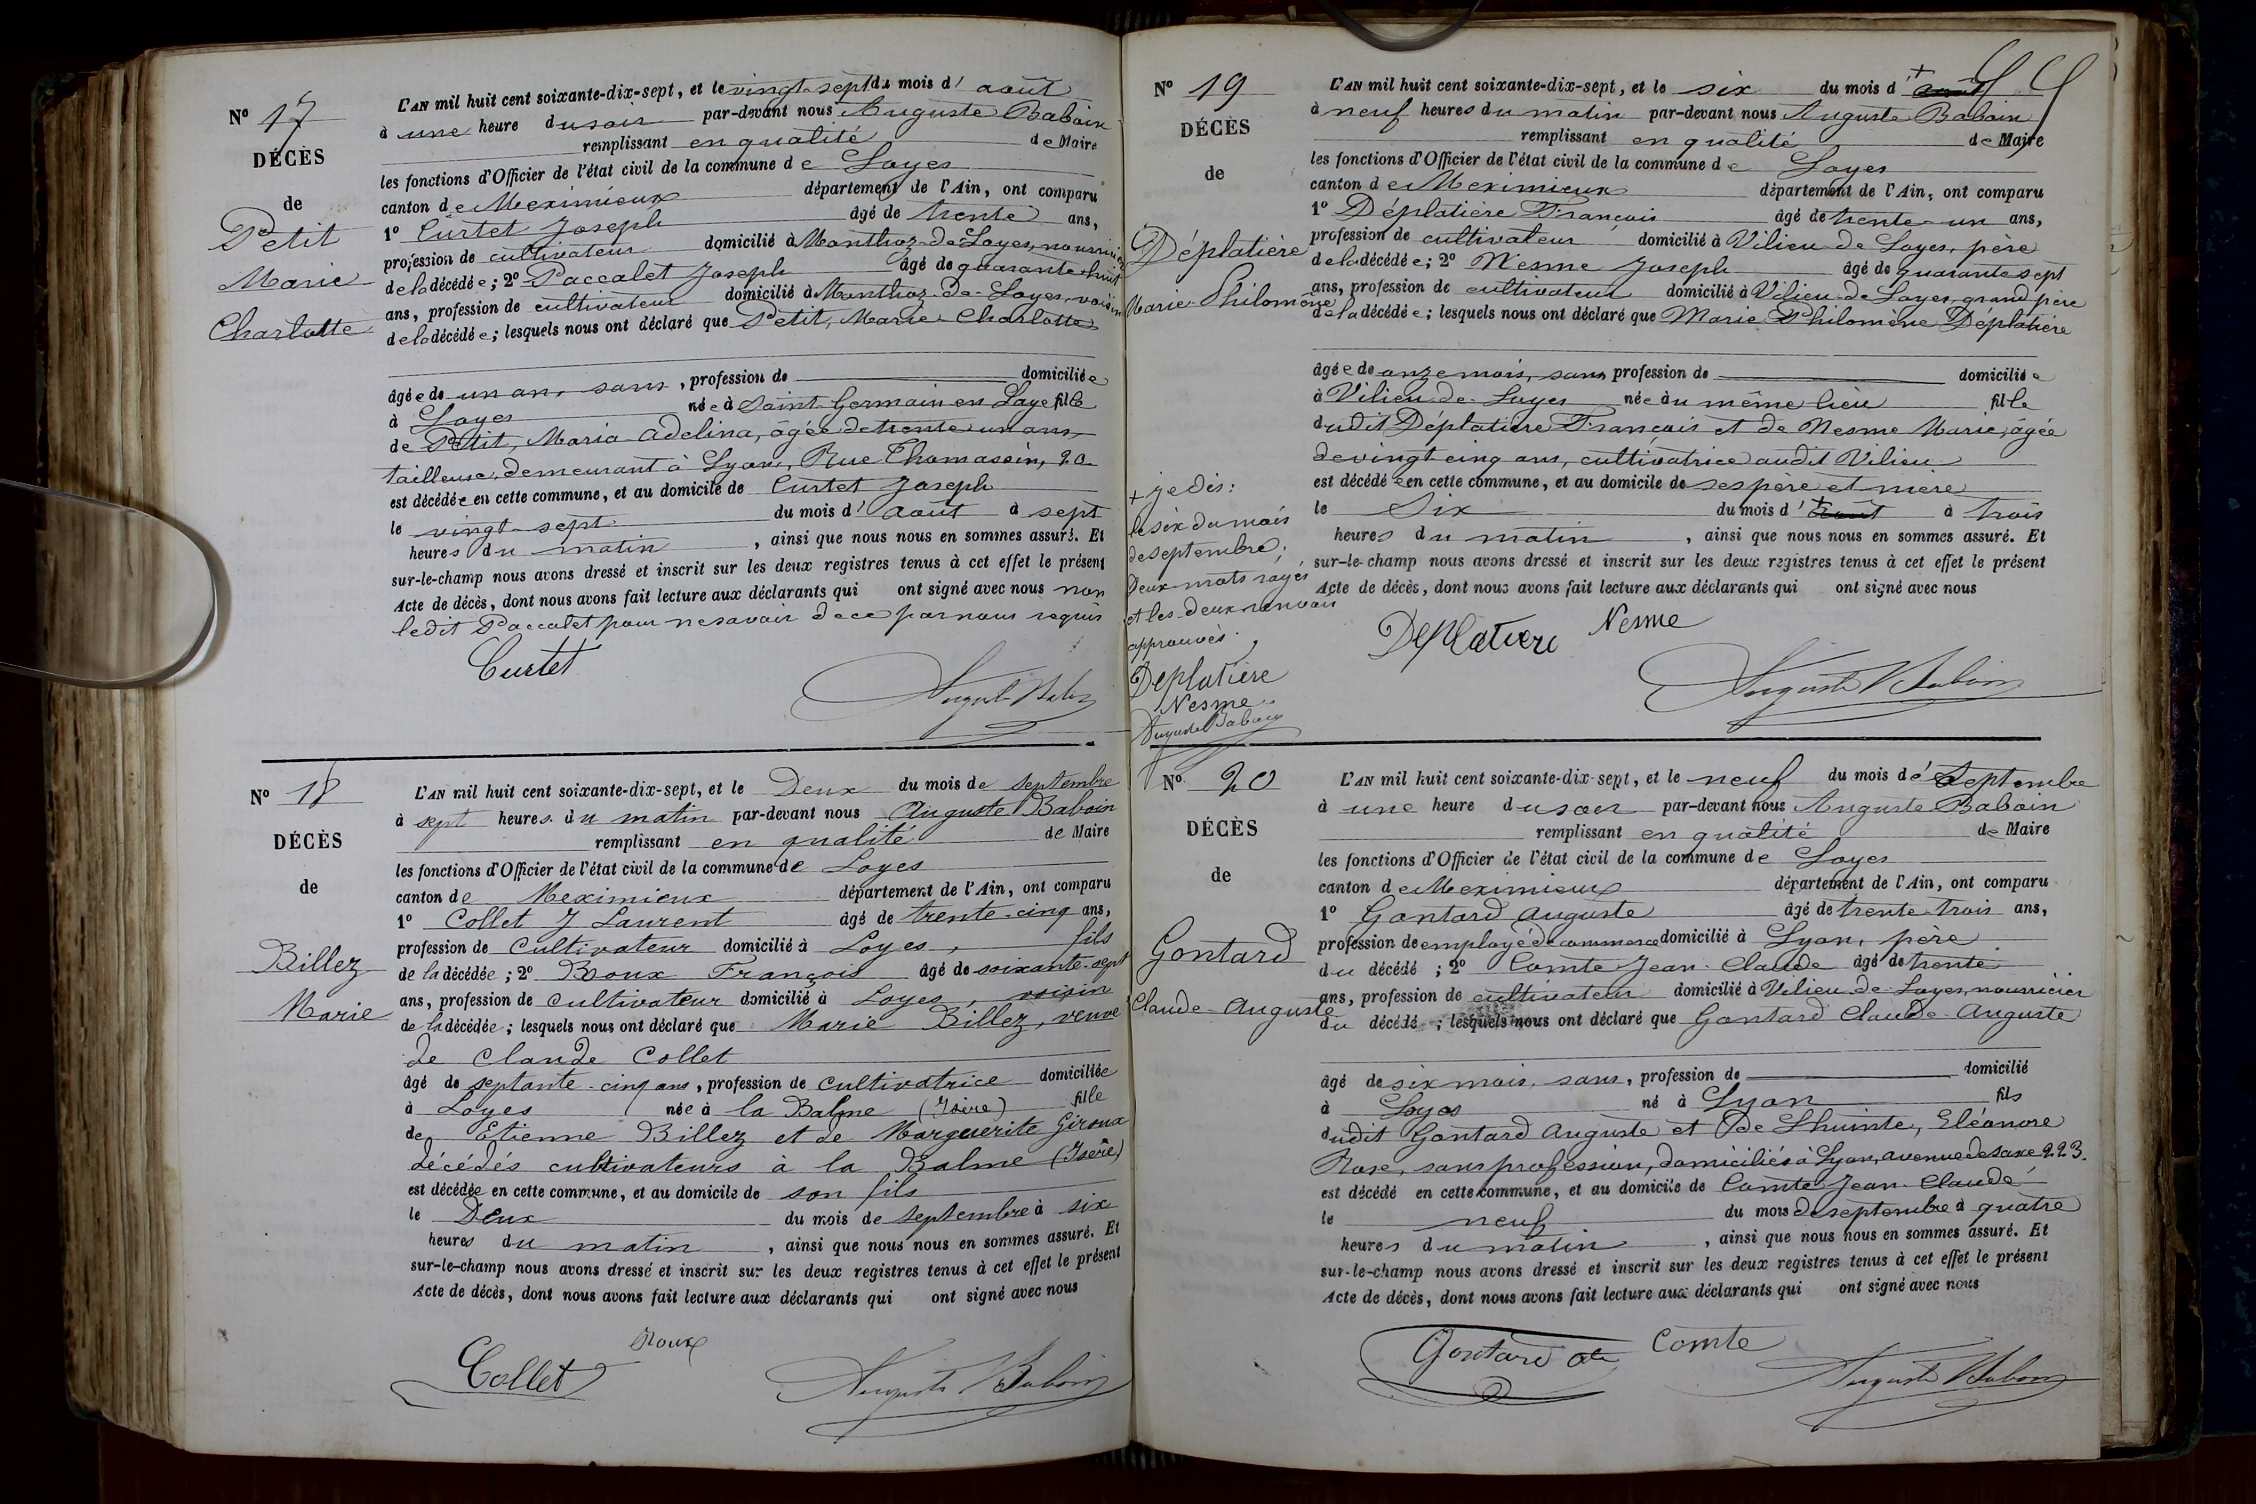 Nº 17
DÉCÈS
de
Petit
Marie
Charlotte
L'AN mil huit cent soixante-dix-sept, et le vingt-sept du mois d'août
à une heure du soir par-devant nous Auguste Baboin
remplissant en qualité de Maire
les fonctions d'Officier de l'état civil de la commune de Loyes
canton de Meximieux département de l'Ain, ont comparu
1º Curtet Joseph âgé de trente ans,
profession de cultivateur domicilié à Monthoz-de-Loyes, nourricier
de la décédée; 2º Paccalet Joseph âgé de quarante-huit
ans, profession de cultivateur domicilié à Monthoz-de-Loyes, voisin
de la décédée; lesquels nous ont déclaré que Petit, Marie Charlotte
âgée de un an, sans, profession de domiciliée
à Loyes née à Saint-Germain en Laye fille
de Petit, Maria Adelina, âgée de trente un ans,
tailleuse, demeurant à Lyon, Rue Thomassin, 20
est décédée en cette commune, et au domicile de Curtet Joseph
le vingt-sept du mois d'août à sept
heures du matin, ainsi que nous nous en sommes assuré. Et
sur-le-champ nous avons dressé et inscrit sur les deux registres tenus à cet effet le présent
Acte de décès, dont nous avons fait lecture aux déclarants qui ont signé avec nous non
ledit Paccalet pour ne savoir de ce par nous requis
Curtet
Auguste Baboin
Nº 18
DÉCÈS
de
Billez
Marie
L'AN mil huit cent soixante-dix-sept, et le Deux du mois de septembre
à sept heures du matin par-devant nous Auguste Baboin
remplissant en qualité de Maire
les fonctions d'Officier de l'état civil de la commune de Loyes
canton de Meximieux département de l'Ain, ont comparu
1º Collet J Laurent âgé de trente-cinq ans,
profession de Cultivateur domicilié à Loyes, fils
de la décédée; 2º Roux François âgé de soixante-sept
ans, profession de Cultivateur domicilié à Loyes, voisin
de la décédée; lesquels nous ont déclaré que Marie Billez, veuve
de Claude Collet
âgé de septante-cinq ans, profession de cultivatrice domiciliée
à Loyes née à la Balme (Isère) fille
de Etienne Billez et de Marguerite Giroux
décédés cultivateurs à la Balme (Isère)
est décédée en cette commune, et au domicile de son fils
le Deux du mois de septembre à six
heures du matin, ainsi que nous nous en sommes assuré. Et
sur-le-champ nous avons dressé et inscrit sur les deux registres tenus à cet effet le présent
Acte de décès, dont nous avons fait lecture aux déclarants qui ont signé avec nous
Roux
Collet
Auguste Baboin
Nº 19
DÉCÈS
de
Déplatière
Marie Philomène
L'AN mil huit cent soixante-dix-sept, et le six du mois d'+ août
à neuf heures du matin par-devant nous Auguste Baboin
remplissant en qualité de Maire
les fonctions d'Officier de l'état civil de la commune de Loyes
canton de Meximieux département de l'Ain, ont comparu
1º Déplatière François âgé de trente-un ans,
profession de cultivateur domicilié à Vilieu-de-Loyes, père
de la décédée; 2º Nesme Joseph âgé de quarante sept
ans, profession de cultivateur domicilié à Vilieu-de-Loyes, grand père
de la décédée; lesquels nous ont déclaré que Marie Philomène Déplatière
âgée de onze mois, sans profession de domiciliée
à Vilieu-de-Loyes née au même lieu fille
dudit Déplatière François et de Nesme Marie, agée
de vingt cinq ans, cultivatrice audit Vilieu
est décédée en cette commune, et au domicile de ses père et mère
le Six du mois d'+ août à trois
heures du matin, ainsi que nous nous en sommes assuré. Et
sur-le-champ nous avons dressé et inscrit sur les deux registres tenus à cet effet le présent
Acte de décès, dont nous avons fait lecture aux déclarants qui ont signé avec nous
Deplatiere Nesme
Auguste Baboin
+ je dis:
le six du mois
de septembre;
Deux mots rayés
et les deux renvois
approuvés.
Deplatière
Nesme
Auguste Baboin
Nº 20
DÉCÈS
de
Gontard
Claude-Auguste
L'AN mil huit cent soixante-dix-sept, et le neuf du mois de Septembre
à une heure du soir par-devant nous Auguste Baboin
remplissant en qualité de Maire
les fonctions d'Officier de l'état civil de la commune de Loyes
canton de Meximieux département de l'Ain, ont comparu
1º Gontard Auguste âgé de trente-trois ans,
profession de employé de commerce domicilié à Lyon, père
du décédé; 2º Comte Jean-Claude âgé de trente
ans, profession de cultivateur domicilié à Vilieu-de-Loyes, nourricier
du décédé; lesquels nous ont déclaré que Gontard Claude-Auguste
âgé de six mois, sans, profession de domicilié
à Loyes né à Lyon fils
dudit Gontard Auguste et de Lhuinte, Eléonore
Rose, sans profession, domiciliés à Lyon, avenue de Saxe 223.
est décédé en cette commune, et au domicile de Comte Jean-Claude
le neuf du mois de septembre à quatre
heures du matin, ainsi que nous nous en sommes assuré. Et
sur-le-champ nous avons dressé et inscrit sur les deux registres tenus à cet effet le présent
Acte de décès, dont nous avons fait lecture aux déclarants qui ont signé avec nous
Gontard Comte
Auguste Baboin